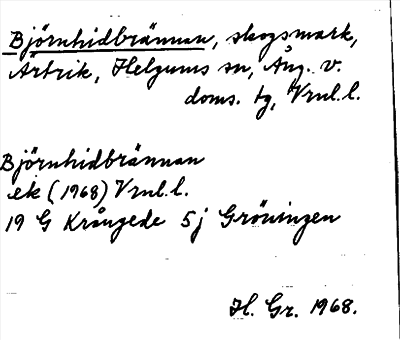 Björnhidbrännan, skogsmark,
Ärtrik, Helgums sn, Ång. v.
doms. tg, Vrnl. l.
Björnhidbrännan
ek (1968) Vrnl. l.
19 G Krångede 5j Gröningen
H. Gr. 1968.